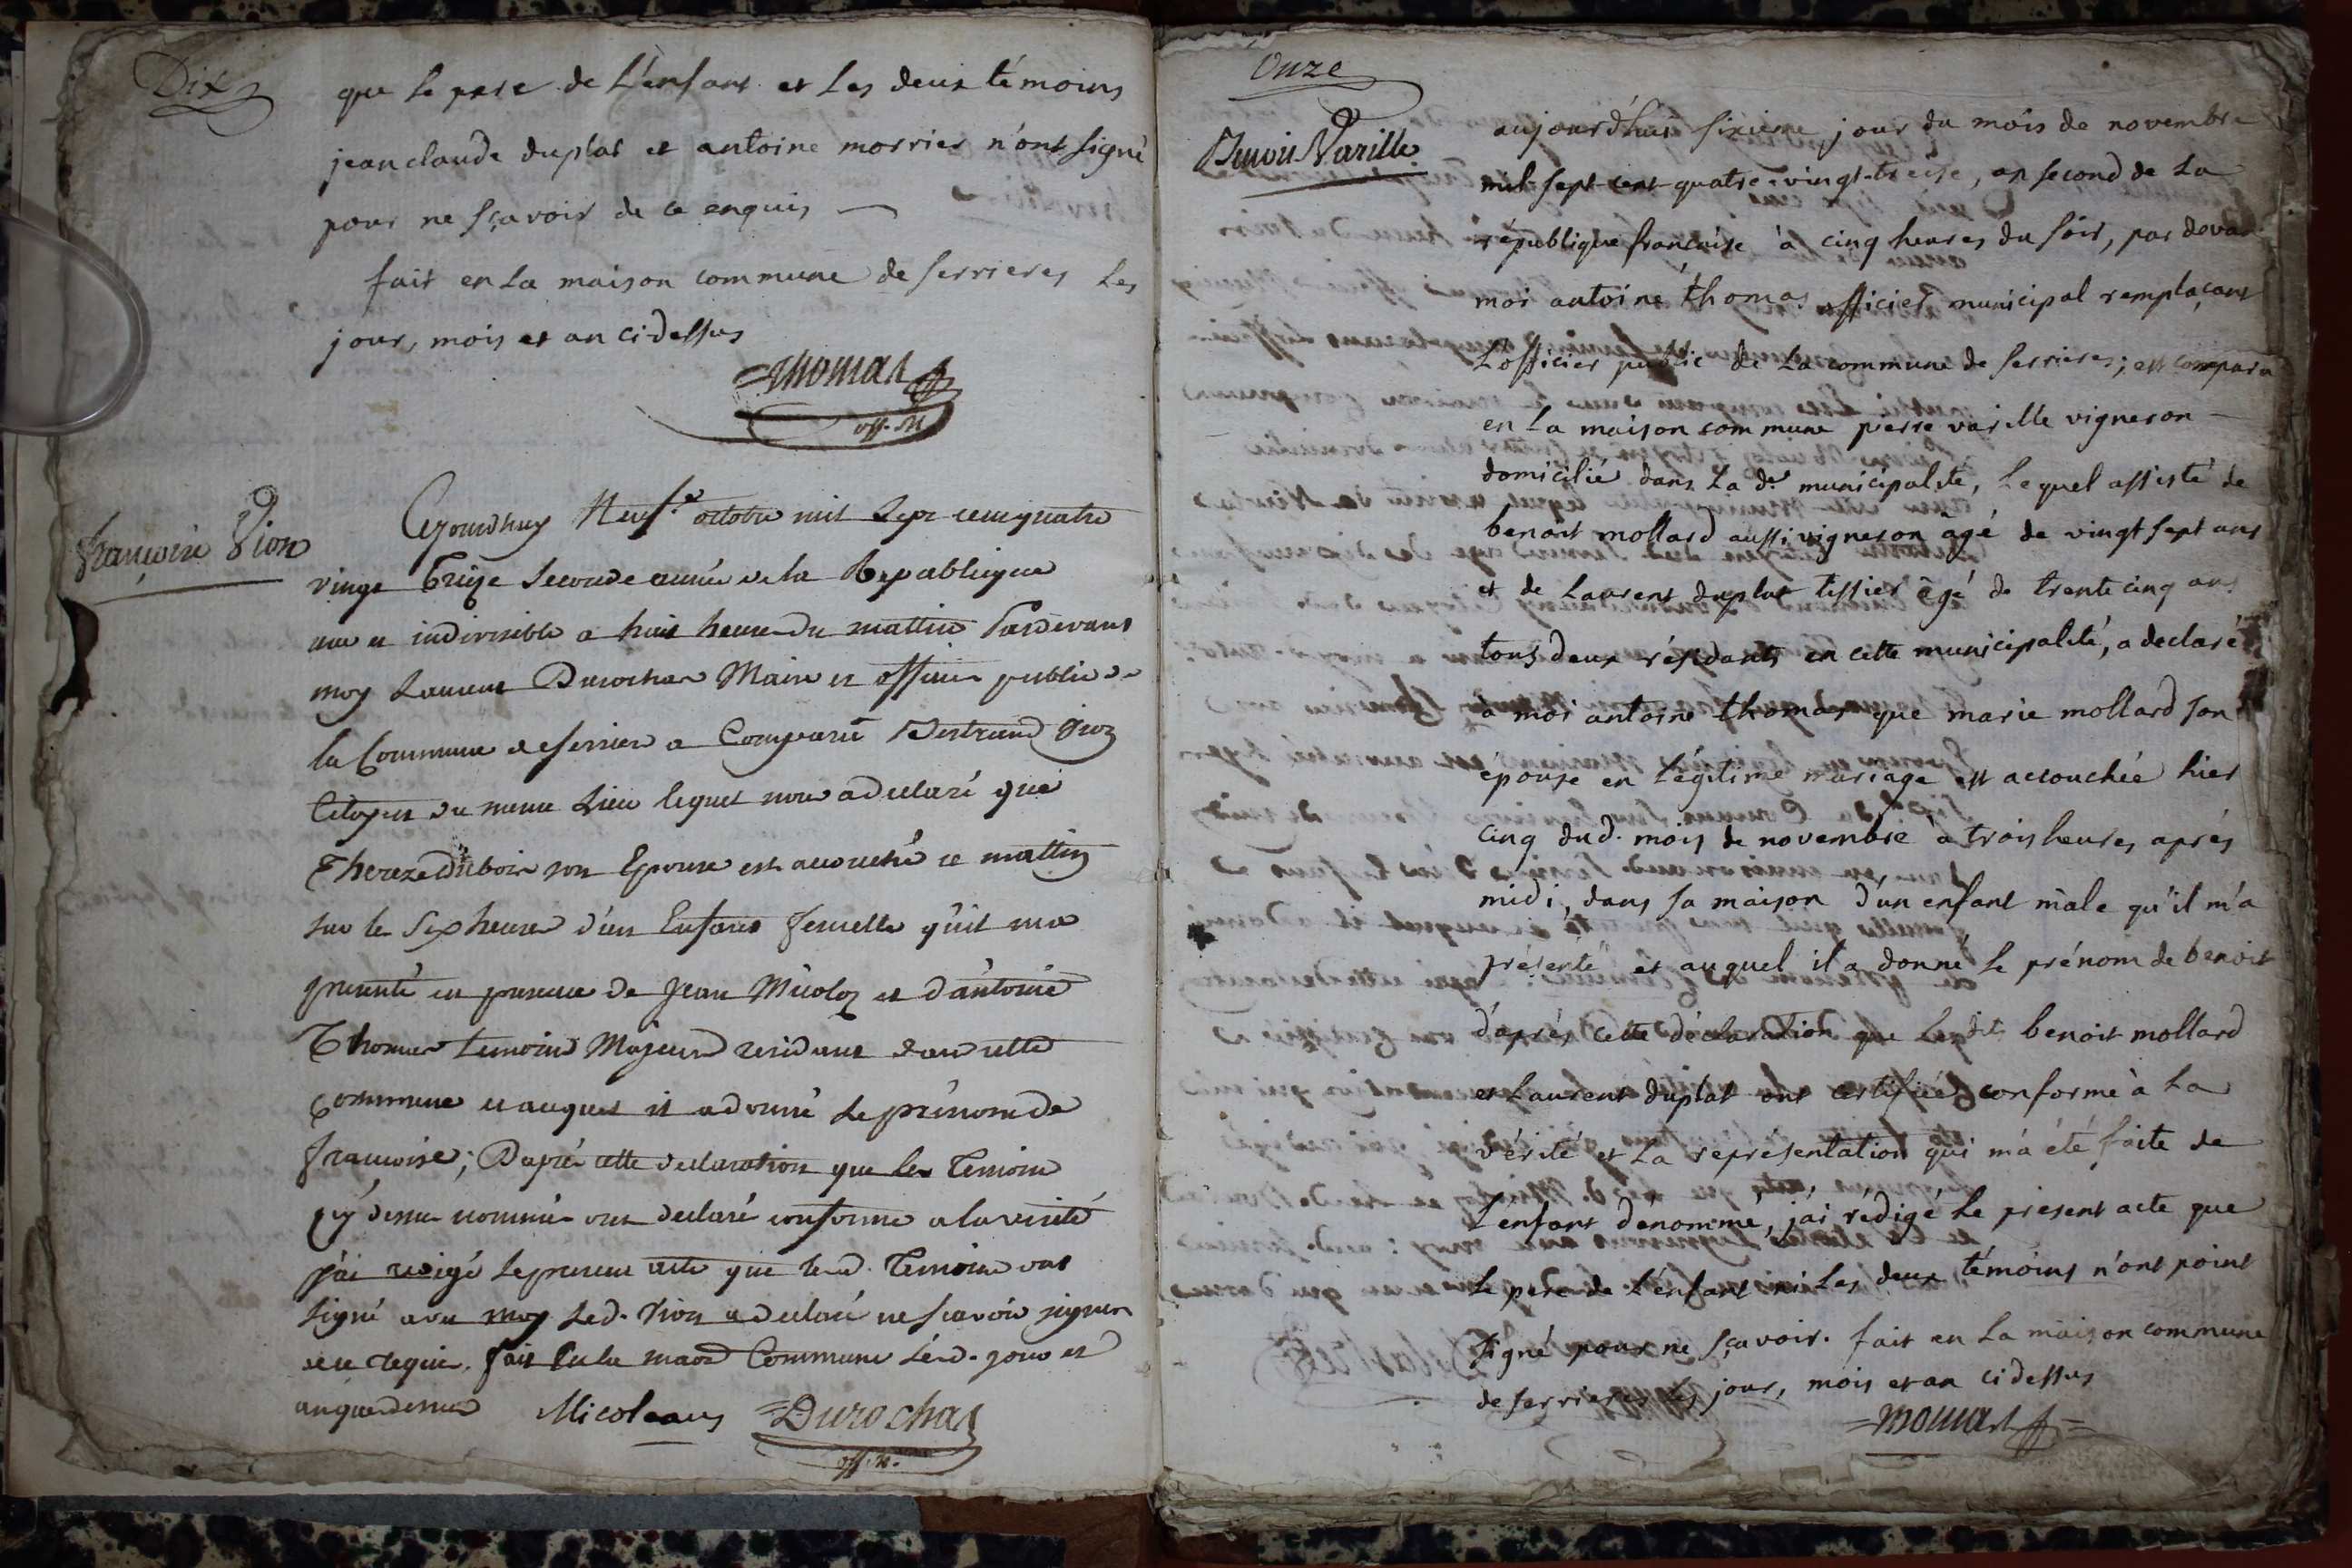 Dix
que le pere de L'enfant et les deux témoins
jean claude duplat et antoine morrier n'ont signé
pour ne sçavoir de ce enquis
fait en La maison commune de serrieres les
jour, mois et an cidessus
Thomas
off. M
françoise Vion
Cejourdhuy Neuf.e octobre mil Sept cent quatre
vingt Treize seconde année de la Republique
une et indivisible a huit heure du mattin Pardevant
moy Laurent Durochat Maire et officier public de
la Commune de serriere a Comparu Bertrand Vion
Citoyen du meme Lieu lequel nous a declaré que
Thereze Dubois son Epouse est accouché ce mattin
sur les Six heures d'un Enfant femelle qu'il ma
presenté en presence de Jean Micolo et d'antoine
Thomas temoins Majeurs residant dans cette
Commune et auquel il a donné le prénom de
francoise; D'aprés cette declaration que les Temoins
cy dessus nommés ont declaré conforme a la verité
j'ai redigé le present acte que lesd. Temoins ont
signé avec moy Led. Vion a declaré ne scavoir signer
de ce requis. fait En la mais Commune Lesd. jour et
an que dessus Micoleaus Durochat
off. P.
Onze
Benoit Varille
aujourd'hui sixieme jour du mois de novembre
mil sept cent quatre-vingt-treise, an second de La
république francaise à cinq heures du soir, par devant
moi antoine thomas officier municipal remplaçant
L'officier public de La commune de serrieres; est comparu
en La maison commune pierre varille vigneron
domicilié dans La de. municipalité, Lequel assisté de
benoit mollard aussi vigneron âgé de vingt sept ans
et de Laurent duplat tissier âgé de trente cinq ans
tous deux résidants en cette municipalité, a declaré
a moi antoine thomas que marie mollard son
épouse en Légitime mariage est accouchée hier
cinq dud. mois de novembre à trois heures aprés
midi, dans sa maison d'un enfant mâle qu'il m'a
présenté et auquel il a donné le prénom de benoit
d'aprés cette déclaration que Lesdt benoit mollard
et Laurent duplat ont certifiée conforme à La
vérité et La représentation qui m'a été faite de
L'enfant dénommé, j'ai rédigé Le présent acte que
Le pere de L'enfant ni Les deux témoins n'ont point
signé pour ne sçavoir. fait en La maison commune
de serrieres les jour, mois et an cidessus
Thomas